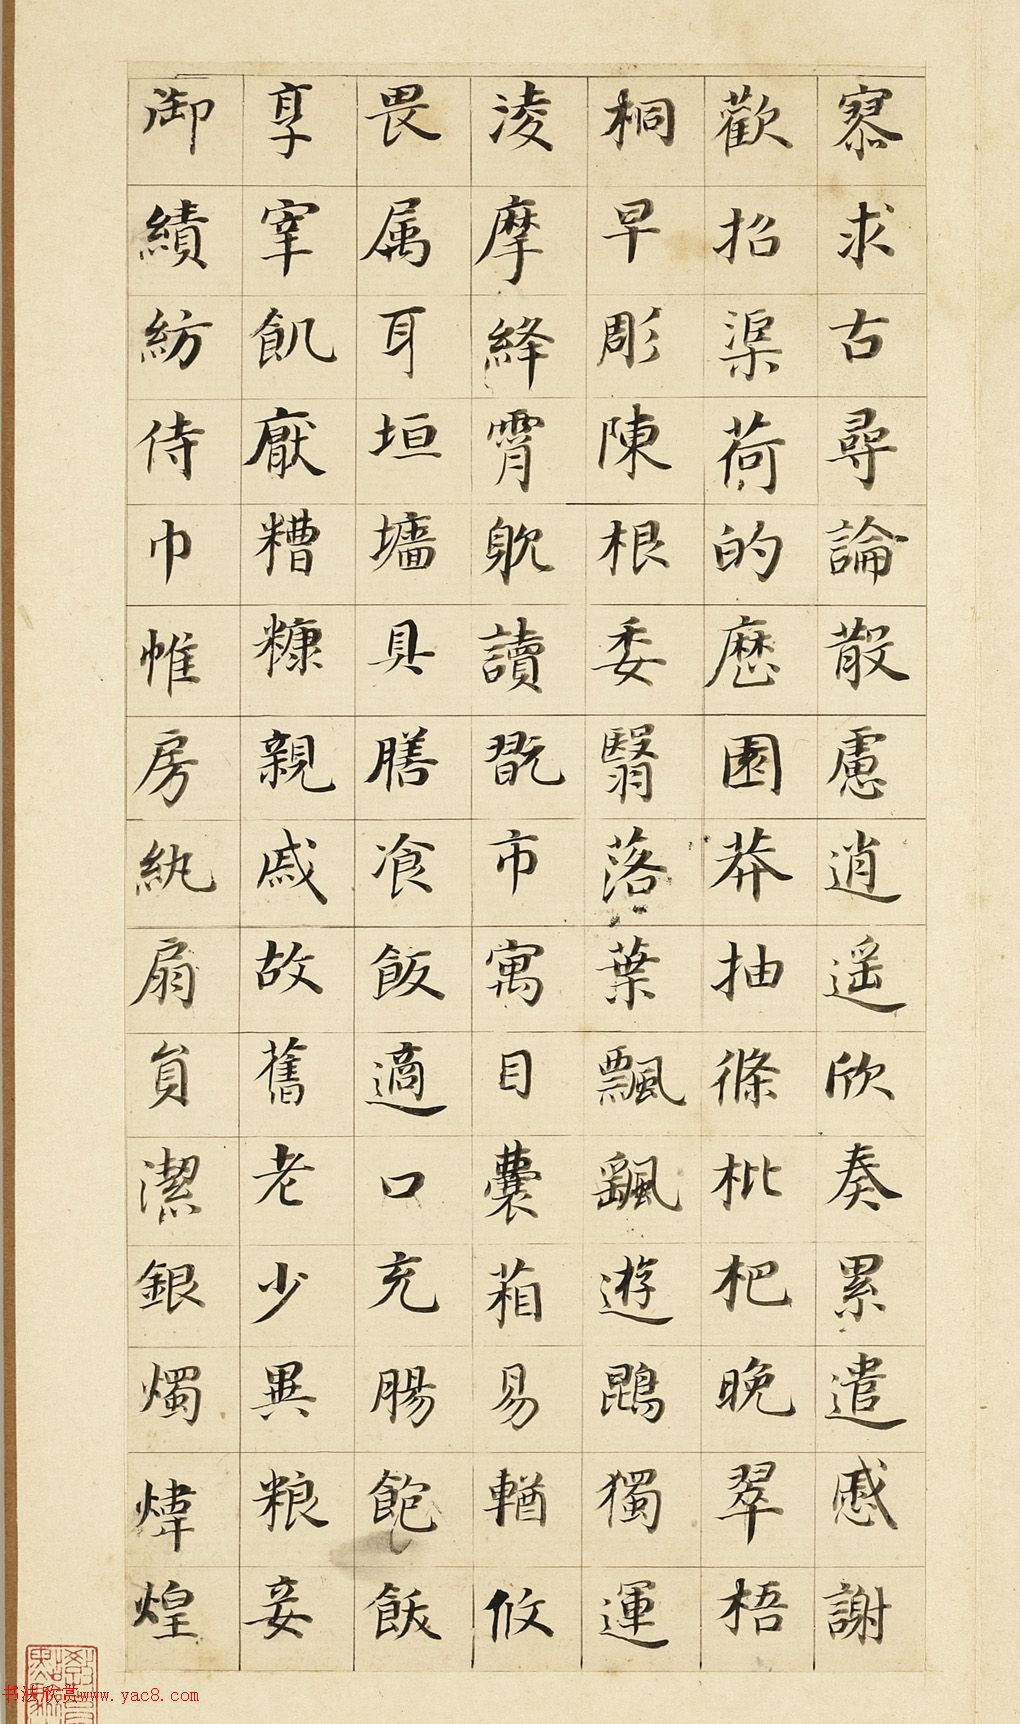 寥求古尋論散慮逍遥欣奏累遣慼謝
歡招渠荷的歷園莽抽條枇杷晚翠梧
桐早彫陳根委翳落葉飄飖遊鵾獨運
淩摩絳霄躭讀翫市寓目囊箱易輶攸
畏属耳垣墻具膳飡飯適口充腸飽飫
享宰飢厭糟糠親戚故舊老少異粮妾
御績紡侍巾帷房紈扇員潔銀燭煒煌
书法欣赏www.yac8.com